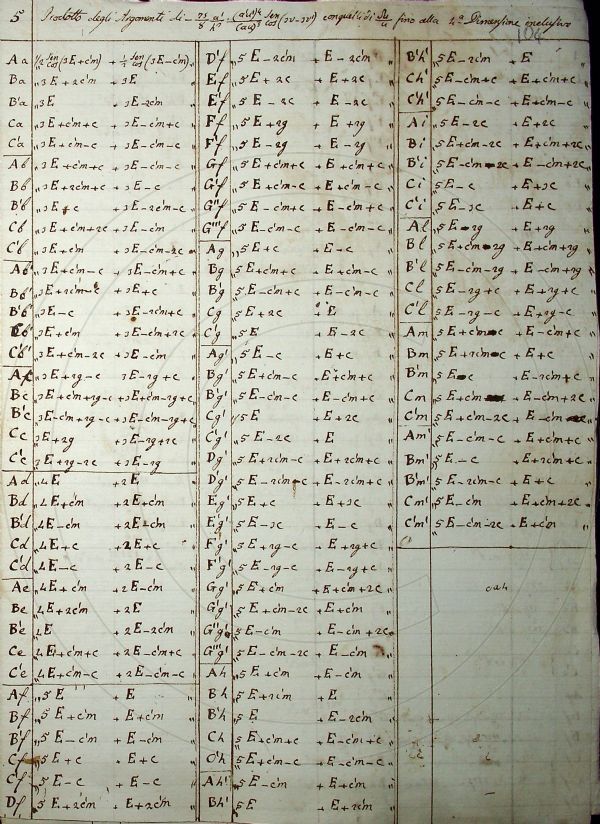 5 Prodotto degli Argomenti di congiunti di fino alla 4.ª Dimensione inclusive
104
Aa ½ sen/cos (3E+c'm) + ½ sen/cos (3E-c'm)
Ba „ 3E+2c'm + 3E
B'a „ 3E + 3E-2c'm
Ca „ 3E+c'm+c + 3E-c'm+c
C'a „ 3E+c'm-c + 3E-c'm-c
Ab „ 3E+c'm+c + 3E-c'm-c
Bb „ 3E+2c'm+c + 3E-c
B'b „ 3E+c + 3E-2c'm-c
Cb „ 3E+c'm+2c + 3E-c'm
C'b „ 3E+c'm + 3E-c'm-2c
Ab' „ 3E+c'm-c + 3E-c'm+c
Bb' „ 3E+2c'm-c + 3E+c
B'b' „ 3E-c + 3E-2c'm+c
Cb' „ 3E+c'm + 3E-c'm+2c
C'b' „ 3E+c'm-2c + 3E-c'm
Ac „ 3E+2g-c + 3E-2g+c
Bc „ 3E+c'm+2g-c + 3E+c'm-2g+c
B'c „ 3E-c'm+2g-c + 3E-c'm-2g+c
Cc „ 3E+2g + 3E-2g+2c
C'c „ 3E+2g-2c + 3E-2g
Ad „ 4E + 2E
Bd „ 4E+c'm + 2E+c'm
B'd „ 4E-c'm + 2E-c'm
Cd „ 4E+c + 2E+c
C'd „ 4E-c + 2E-c
Ae „ 4E+c'm + 2E-c'm
Be „ 4E+2c'm + 2E
B'e „ 4E + 2E-2c'm
Ce „ 4E+c'm+c + 2E-c'm+c
C'e „ 4E+c'm-c + 2E-c'm-c
Af „ 5E + E
Bf „ 5E+c'm + E+c'm
B'f „ 5E-c'm + E-c'm
Cf „ 5E+c + E+c
C'f „ 5E-c + E-c
Df „ 5E+2c'm + E+2c'm
D'f „ 5E-2c'm + E-2c'm
Ef „ 5E+2c + E+2c
E'f „ 5E-2c + E-2c
Ff „ 5E+2g + E+2g
F'f „ 5E-2g + E-2g
Gf „ 5E+c'm+c + E+c'm+c
G'f „ 5E+c'm-c + E+c'm-c
G''f „ 5E-c'm+c + E-c'm+c
G'''f „ 5E-c'm-c + E-c'm-c
Ag „ 5E+c + E-c
Bg „ 5E+c'm+c + E+c'm-c
B'g „ 5E-c'm+c + E-c'm-c
Cg „ 5E+2c + E
C'g „ 5E + E-2c
Ag' „ 5E-c + E+c
Bg' „ 5E+c'm-c + E+c'm+c
B'g' „ 5E-c'm-c + E-c'm+c
Cg' „ 5E + E+2c
C'g' „ 5E-2c + E
Dg' „ 5E+2c'm-c + E+2c'm+c
D'g' „ 5E-2c'm-c + E-2c'm+c
Eg' „ 5E+c + E+3c
E'g' „ 5E-3c + E-c
Fg' „ 5E+2g-c + E+2g+c
F'g' „ 5E-2g-c + E-2g+c
Gg' „ 5E+c'm + E+c'm+2c
G'g' „ 5E+c'm-2c + E+c'm
G''g' „ 5E-c'm + E-c'm+2c
G'''g' „ 5E-c'm-2c + E-c'm
Ah „ 5E+c'm + E-c'm
Bh „ 5E+2c'm + E
B'h „ 5E + E-2c'm
Ch „ 5E+c'm+c + E-c'm+c
C'h „ 5E+c'm-c + E-c'm-c
Ah' „ 5E-c'm + E+c'm
Bh' „ 5E + E+2c'm
B'h' „ 5E-2c'm + E
Ch' „ 5E-c'm+c + E+c'm+c
C'h' „ 5E-c'm-c + E+c'm-c
Ai „ 5E-2c + E+2c
Bi „ 5E+c'm-2c + E+c'm+2c
B'i „ 5E-c'm-2c + E-c'm+2c
Ci „ 5E-c + E+3c
C'i „ 5E-3c + E+c
Al „ 5E-2g + E+2g
Bl „ 5E+c'm-2g + E+c'm+2g
B'l „ 5E-c'm-2g + E-c'm+2g
Cl „ 5E-2g+c + E+2g+c
C'l „ 5E-2g-c + E+2g-c
Am „ 5E+c'm-c + E-c'm+c
Bm „ 5E+2c'm-c + E+c
B'm „ 5E-c + E-2c'm+c
Cm „ 5E+c'm + E-c'm+2c
C'm „ 5E+c'm-2c + E-c'm
Am' „ 5E-c'm-c + E+c'm+c
Bm' „ 5E-c + E+2c'm+c
B'm' „ 5E-2c'm-c + E+c
Cm' „ 5E-c'm + E+c'm+2c
C'm' „ 5E-c'm-2c + E+c'm